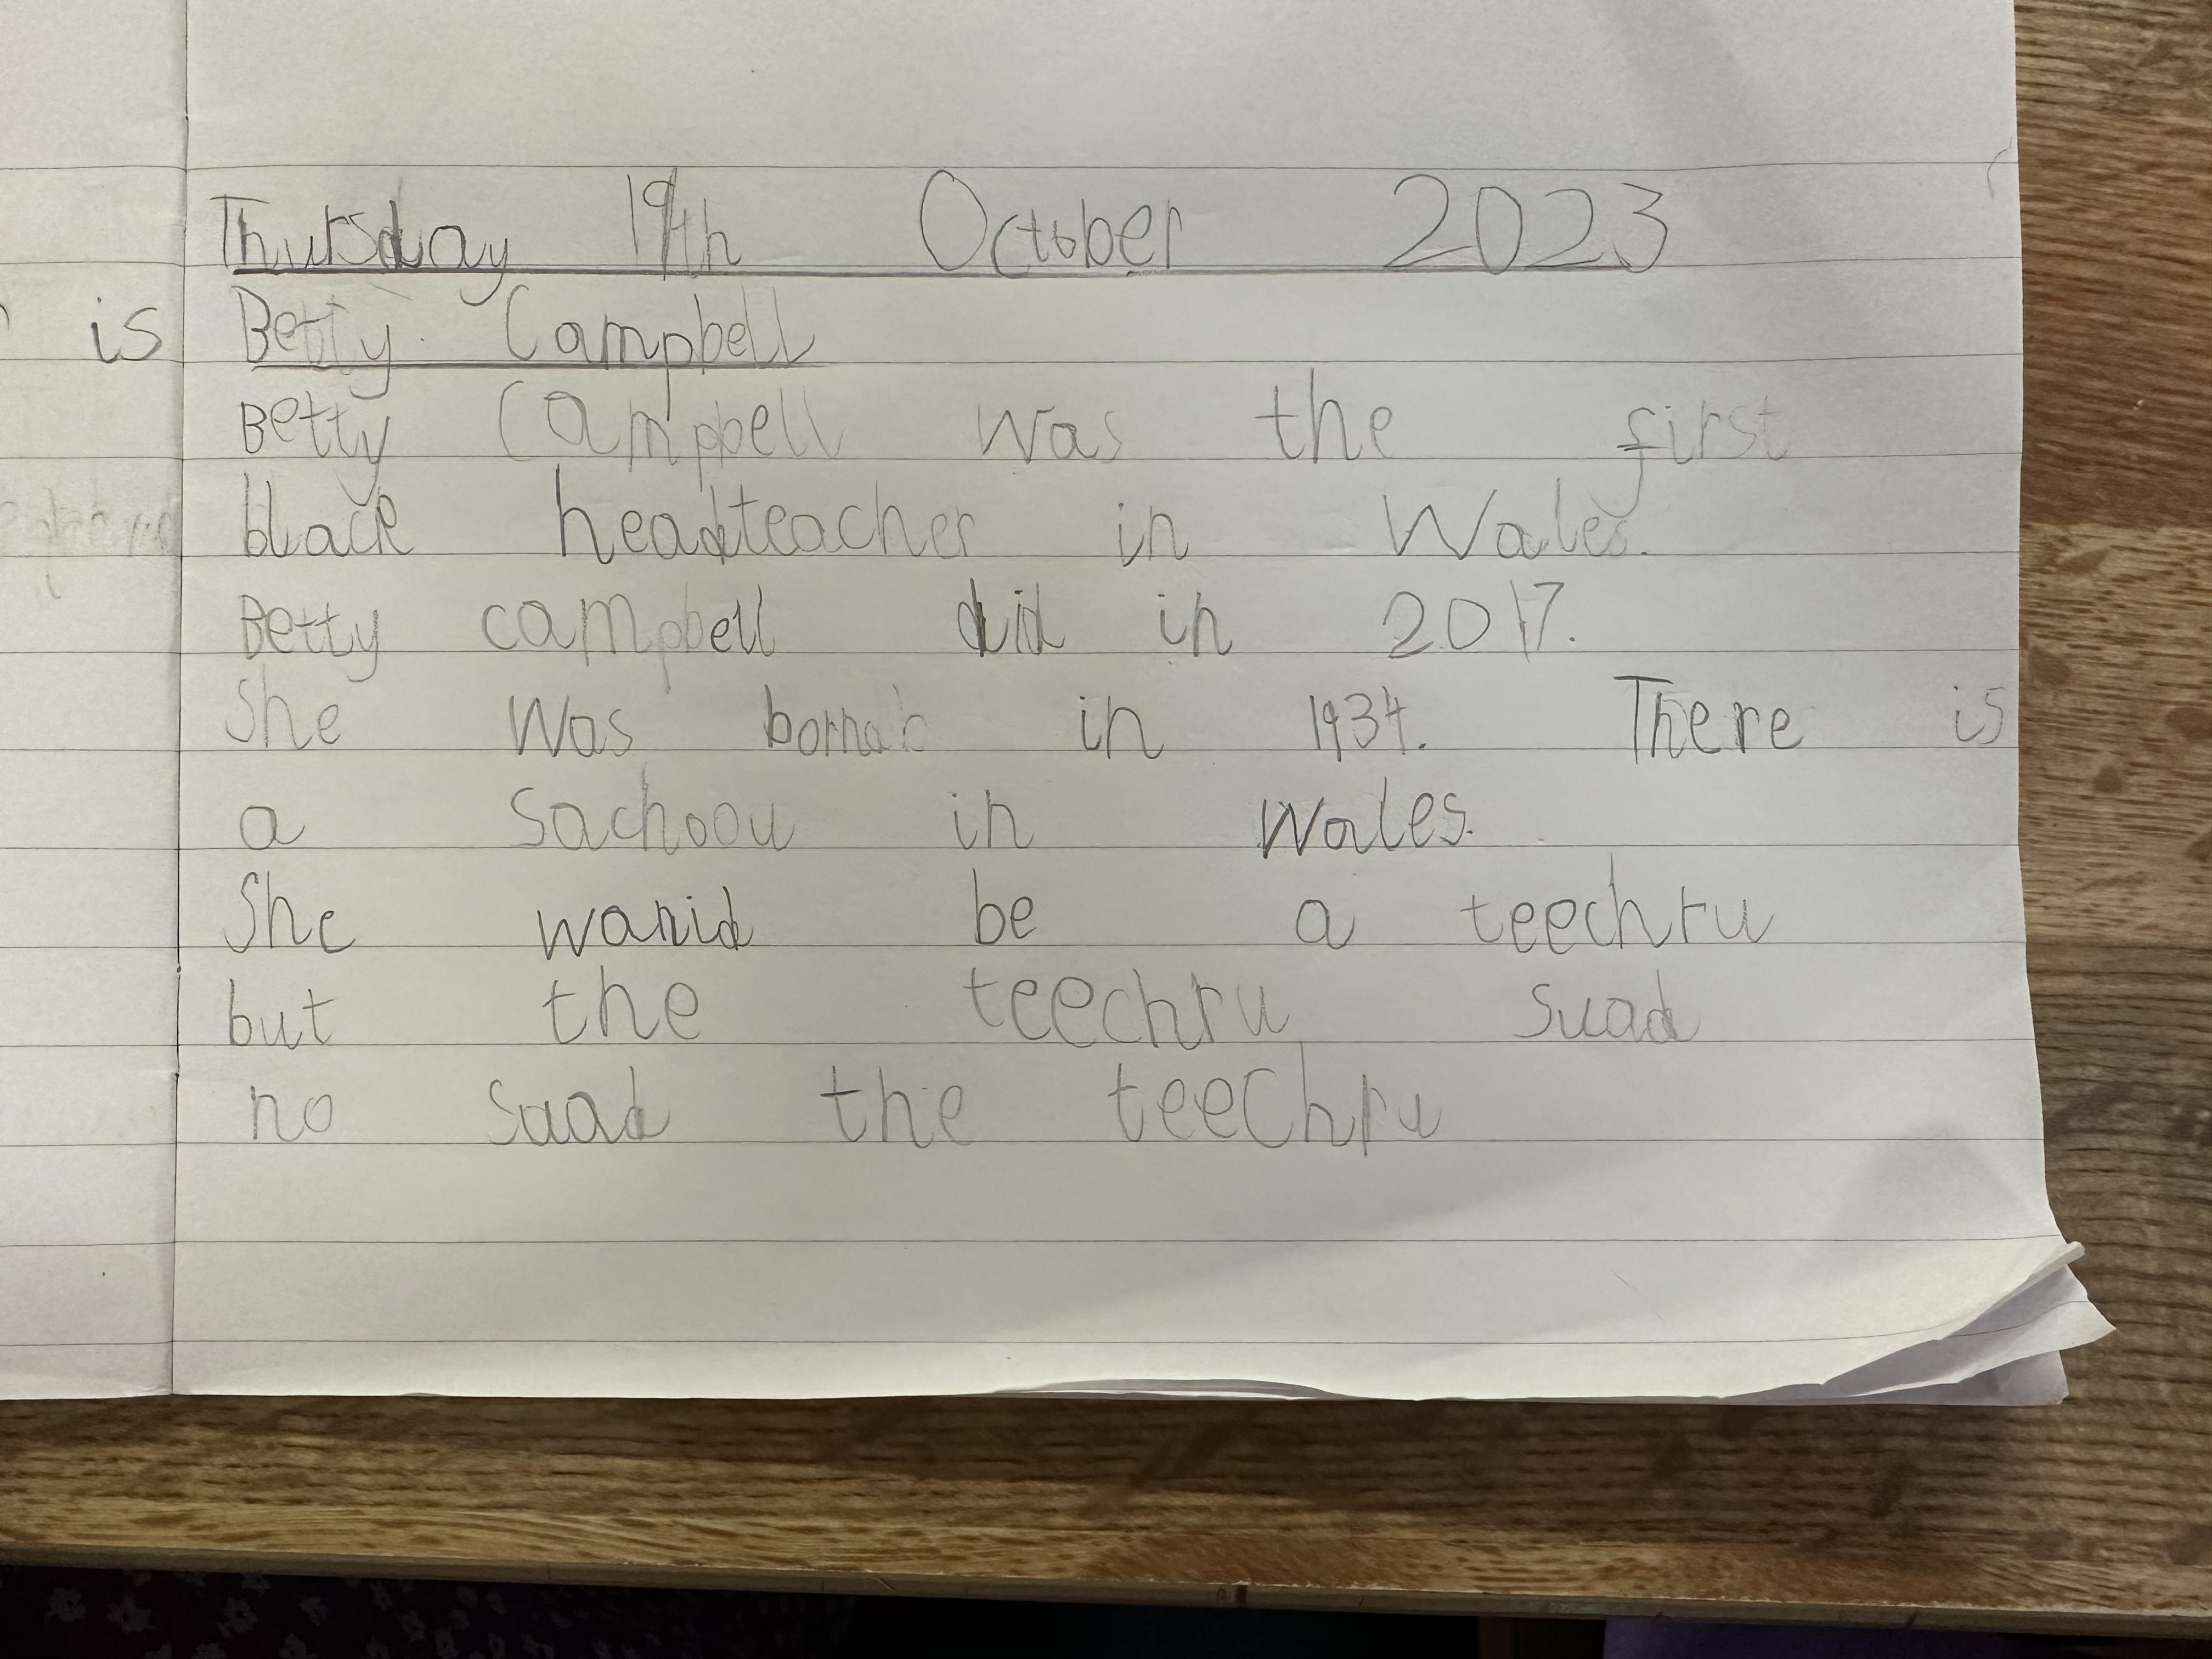 Thursday 19th October 2023
is
Betty Campbell
Betty Campbell was the first
black headteacher in Wales.
Betty campbell did in 2017.
She was in 1934. There is
a Sachoou in Wales.
She wanid be a teechru
but the teechru suad
no suad the teechru